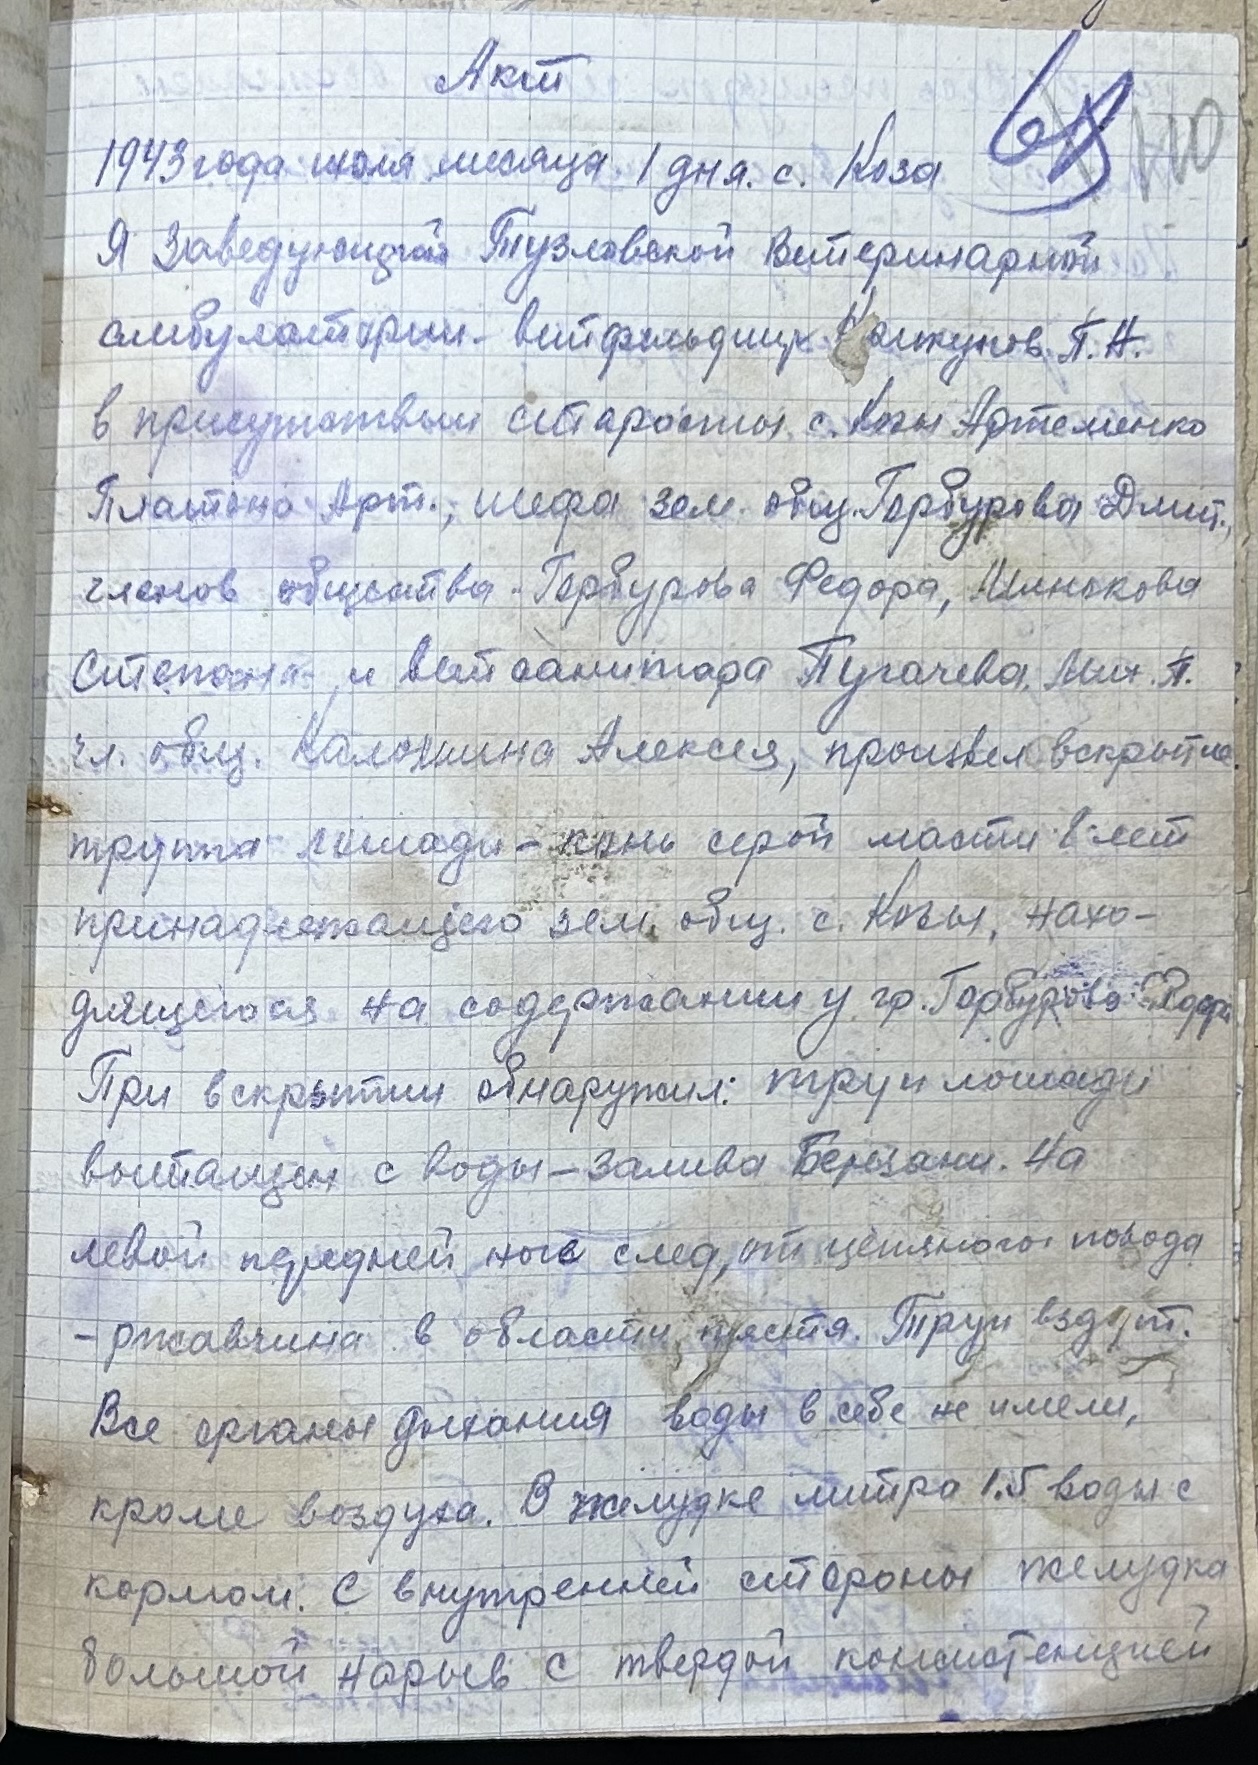 Акт
1943 года июля месяца 1 дня. с. Коза
Я Заведующий Тузловской Ветеринарной
амбулатории - ветфельдшер П.А.
в присутствии старосты с. Козы Артеменко
Платона Арт., шефа зем. общ. Горбурова Дмит.,
членов общества - Горбурова Федора,
Степана и ветсанитара Пугачева Мих. П.
чл. общ. Калошина Алексея, произвел вскрытие
трупа лошади - конь серой масти 8 лет
принадлежащего зем. общ. с. Козы, нахо-
дящегося на содержании у гр. Горбурова Федора
При вскрытии обнаружил: труп лошади
вытащен с воды - залива Березани. На
левой передней ноге след, от цепяного повода
- ржавчина в области пястя. Труп вздут.
Все органы дыхания воды в себе не имели,
кроме воздуха. В желудке литра 1.5 воды с
кормом. С внутренней стороны желудка
большой нарыв с твердой консистенцией